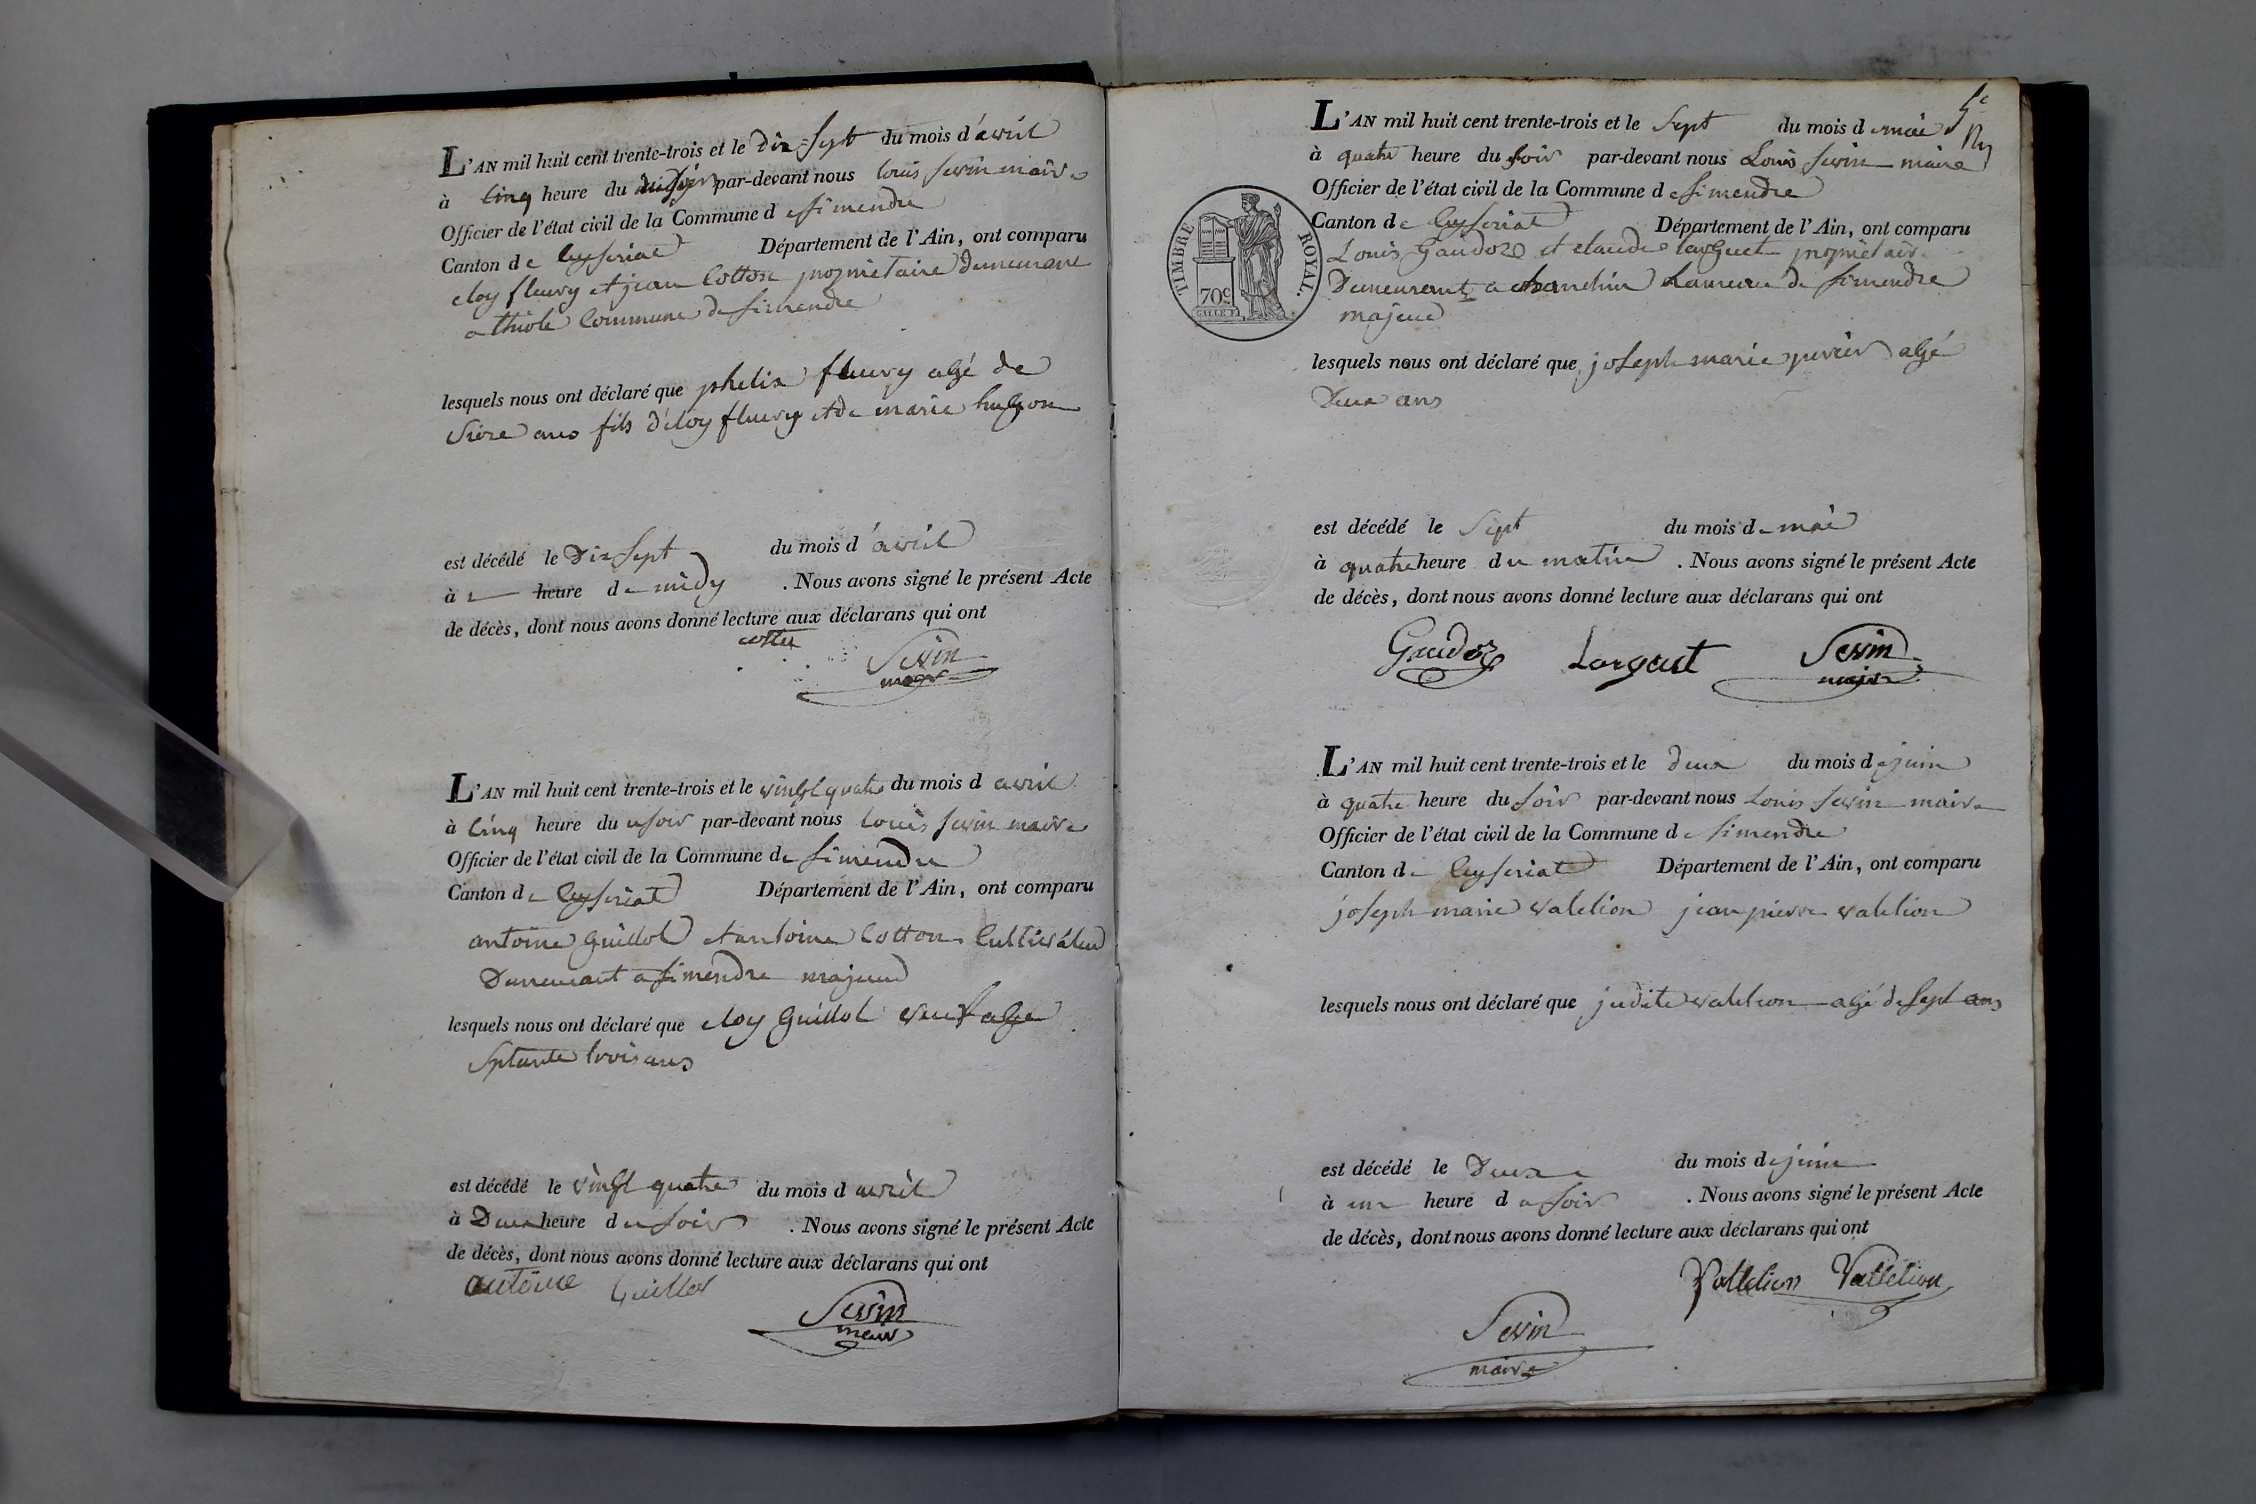 L'AN mil huit cent trente-trois et le dix-sept du mois d'avril
à cinq heure du soir par-devant nous louis sevin maire
Officier de l'état civil de la Commune de simendre
Canton de Ceyseriat Département de l'Ain, ont comparu
eloy fleury et jean Cotton propriétaire demeurant
a thiole Commune de simendre
lesquels nous ont déclaré que phelix fleury agé de
fils d'éloy fleury et de marie hugon
est décédé le Dix sept du mois d'avril
à heure de midy . Nous avons signé le présent Acte
de décès, dont nous avons donné lecture aux déclarans qui ont
Sevin
maire
L'AN mil huit cent trente-trois et le vingt quatre du mois d avril
à Cinq heure du soir par-devant nous Louis sevin maire
Officier de l'état civil de la Commune de simendre
Canton de Ceyseriat Département de l'Ain, ont comparu
antoine Guillot et antoine Cotton Cultivateur
Demeurant a simendre majeur
lesquels nous ont déclaré que eloy Guillot veuf agé
septante trois ans
est décédé le vingt quatre du mois d avril
à Deux heure du soir . Nous avons signé le présent Acte
de décès, dont nous avons donné lecture aux déclarans qui ont
antoine Guillot
Sevin
maire
L'AN mil huit cent trente-trois et le sept du mois de mai
à quatre heure du soir par-devant nous Louis sevin maire
Officier de l'état civil de la Commune de simendre
Canton de Ceyseriat Département de l'Ain, ont comparu
TIMBRE ROYAL.
70c
Louis Gaudoz et claude larguet propriétaire
Demeurant a hameau de simendre
majeur
lesquels nous ont déclaré que joseph marie agé
Deux ans
est décédé le Sept du mois de mai
à quatre heure du matin . Nous avons signé le présent Acte
de décès, dont nous avons donné lecture aux déclarans qui ont
Gaudoz Larguet Sevin
maire
L'AN mil huit cent trente-trois et le deux du mois de juin
à quatre heure du soir par-devant nous Louis sevin maire
Officier de l'état civil de la Commune de simendre
Canton de Ceyseriat Département de l'Ain, ont comparu
joseph marie valelion jean pierre valelion
lesquels nous ont déclaré que judite valelion agé de sept ans
est décédé le Deux du mois de juin
à une heure du soir . Nous avons signé le présent Acte
de décès, dont nous avons donné lecture aux déclarans qui ont
Vallelion Vallelion
Sevin
maire